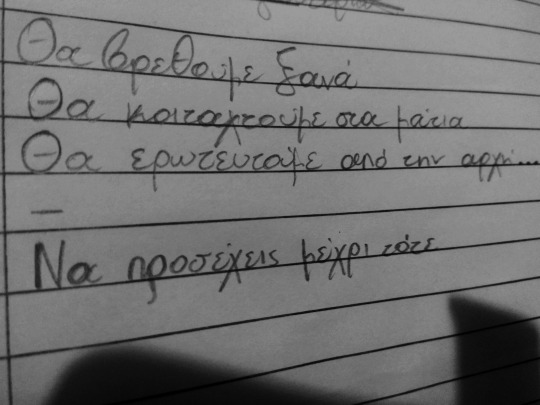 Θα βρεθούμε ξανά
Θα κοιταχτούμε στα μάτια
Θα ερωτευτούμε από την αρχή...
—
Να προσέχεις μέχρι τότε